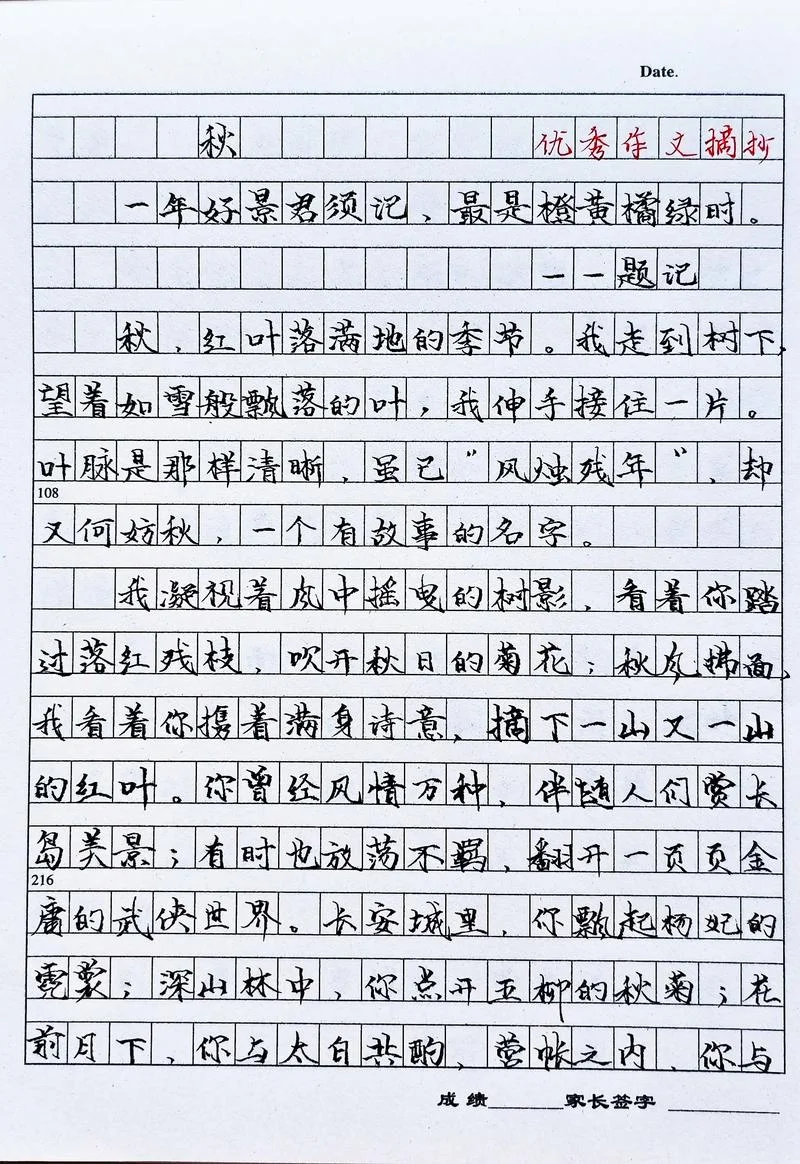 Date.
秋 优秀作文摘抄
一年好景君须记、最是橙黄橘绿时。
——题记
秋、红叶落满地的季节。我走到树下,
望着如雪般飘落的叶,我伸手接住一片。
叶脉是那样清晰、虽已“风烛残年”、却
108
又何妨秋,一个有故事的名字。
我凝视着风中摇曳的树影、看着你踏
过落红残枝、吹开秋日的菊花;秋风拂面、
我看着你携着满身诗意、摘下一山又一山
的红叶。你曾经风情万种、伴随人们赏长
岛美景;有时也放荡不羁、翻开一页页金
216
庸的武侠世界。长安城里、你飘起杨妃的
霓裳;深山林中、你点开五柳的秋菊;花
前月下、你与太白共酌、营帐之内、你与
成绩 家长签字